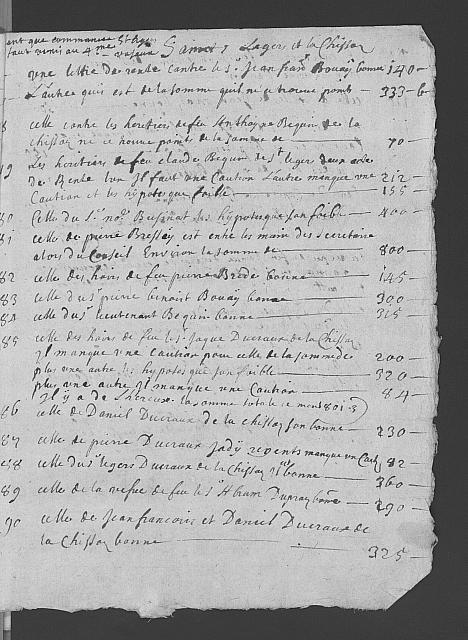 ent que commance St legers
Saint Legers et la Chissaz
une lettre de rente contre les Sr Jean fran Bouay bonne 140 —
L'autre quis est de la somme quil ne ce trouve point — 333 - 6
8 celle contre les heoitiers de feu Anthoyne Beguin de la
chissaz ne ce trouve point de la somme de 70 —
Les heoitiers de feu claude Beguin de St legers deux acte
de Rente lun Jl faut une Caution L'autre manque une 212 —
Caution et les hypoteque foible — 155
80 Celle du Sr nore Busenat les hypoteque son foible — 400 —
81 celle de pierre Bressay est entre les main des secretaire
alors du Conseil Environ la somme de — 800 —
82 celle des hoirs de feu pierre Brede bonne — 145 —
83 celle du Sr pierre benoist Bouay bonne — 300 —
84 celle du Sr lieutenant Beguin bonne — 315 —
85 celle des hoirs de feu le Sr Jaque Ducraux de la Chissaz
Jl manque une caution pour celle de la somme de 200 —
plus une autre les hypoteque son foible — 320
plus une autre Jl manque une Caution — 84 —
Jl y a la somme totale ce mont 801-3
86 celle de Daniel Ducraux de la chissaz son bonne — 230 —
87 celle de pierre Ducraux Jady regents manque un Cau 82 —
88 celle du Sr legers Ducraux de la Chissaz bonne — 360 —
89 celle de la vefue de feu le Sr Abram Dupraz bonne — 290 —
90 celle de Jean francois et Daniel Ducraux de
la Chissaz bonne — 325 —